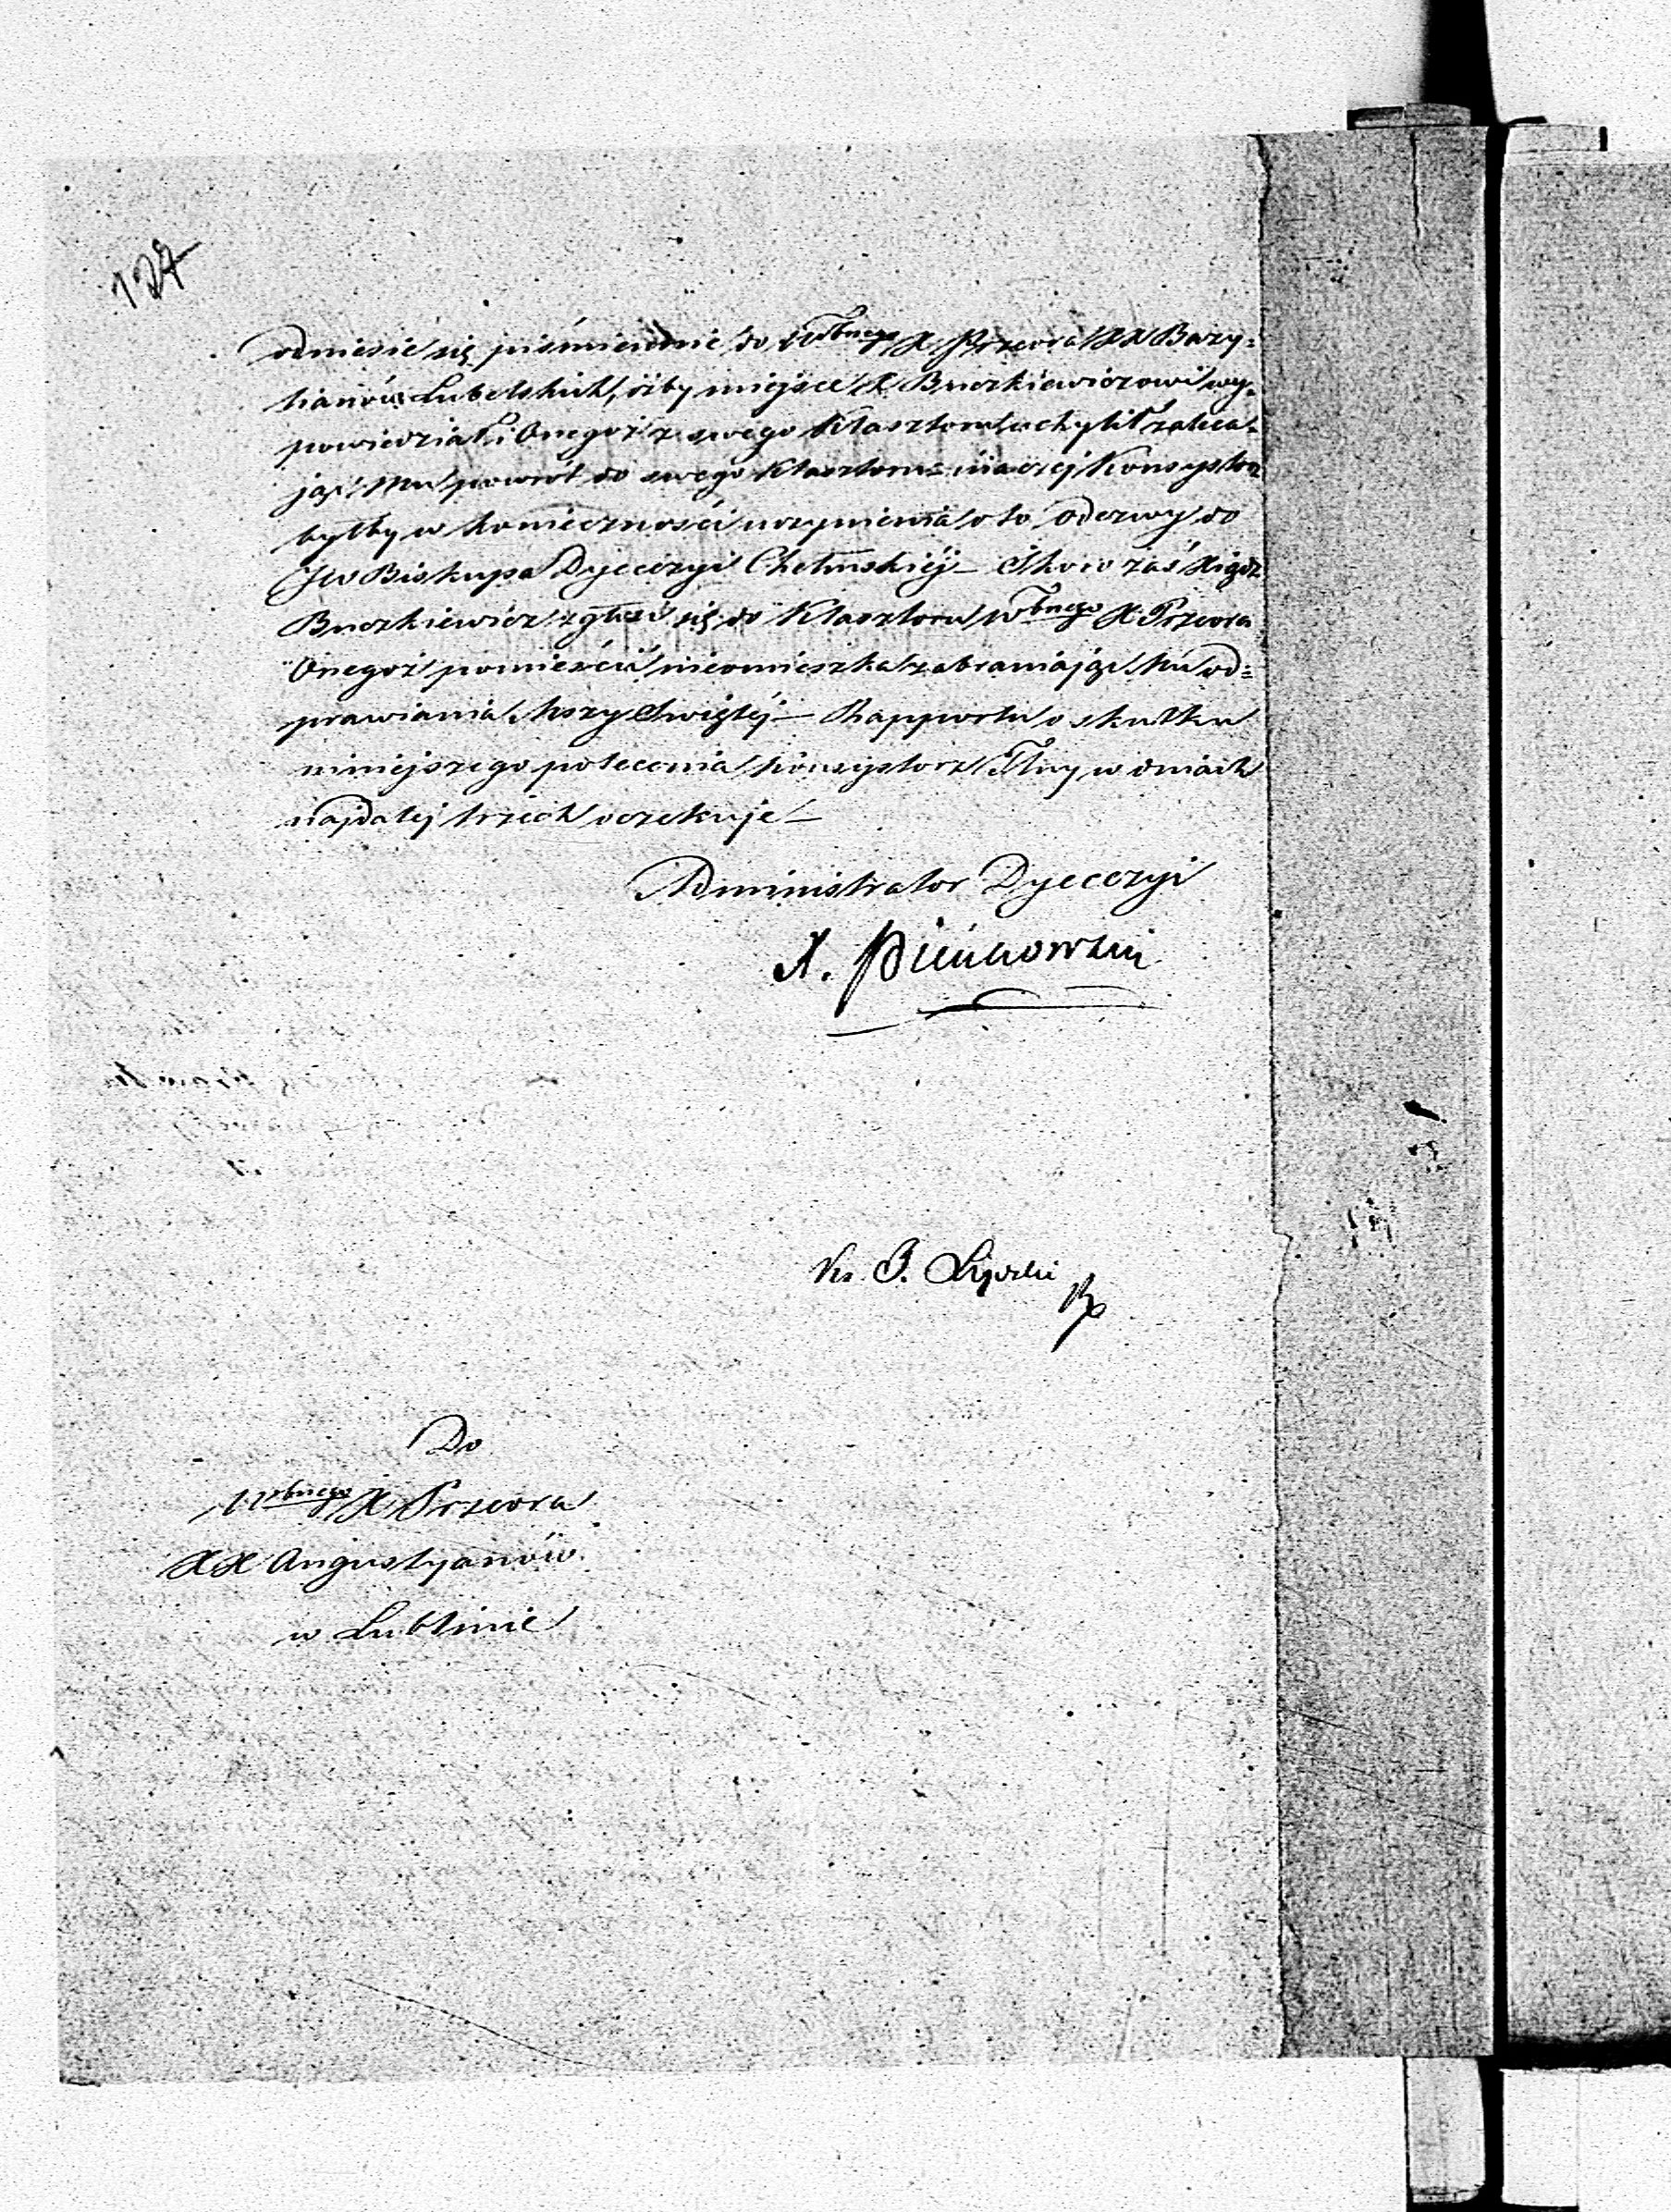 127
odnieśie się piśmiennie do Wbnego X. Przeora XX Bazy=
lianów Lubelskich, iżby miejsce X Buczkiewiczowi wy=
powiedział i Onegoż z swego Klasztoru uchylił zaleca=
jąc Mu powrót do swego Klasztoru inaczej Konsystorz
byłby w konieczności uczynienia o to odezwy do
JW Biskupa Dyecezyi Chełmskiéj – Skoro zaś Xiądz
Buczkiewicz zgłosi się do Klasztoru Wbnego X. Przeora
Onegoż pomieścić nieomieszka zabraniając Mu od=
prawiania Mszy Świętéj – Rapportu o skutku
niniejszego polecenia Konsystorz Jlny w dniach
najdalej trzech oczekuje –
Administrator Dyecezyi
X. Pieńkowski
Ks. J. Lipski
Do
Wbnego X Przeora
XX Augustyanów
w Lublinie